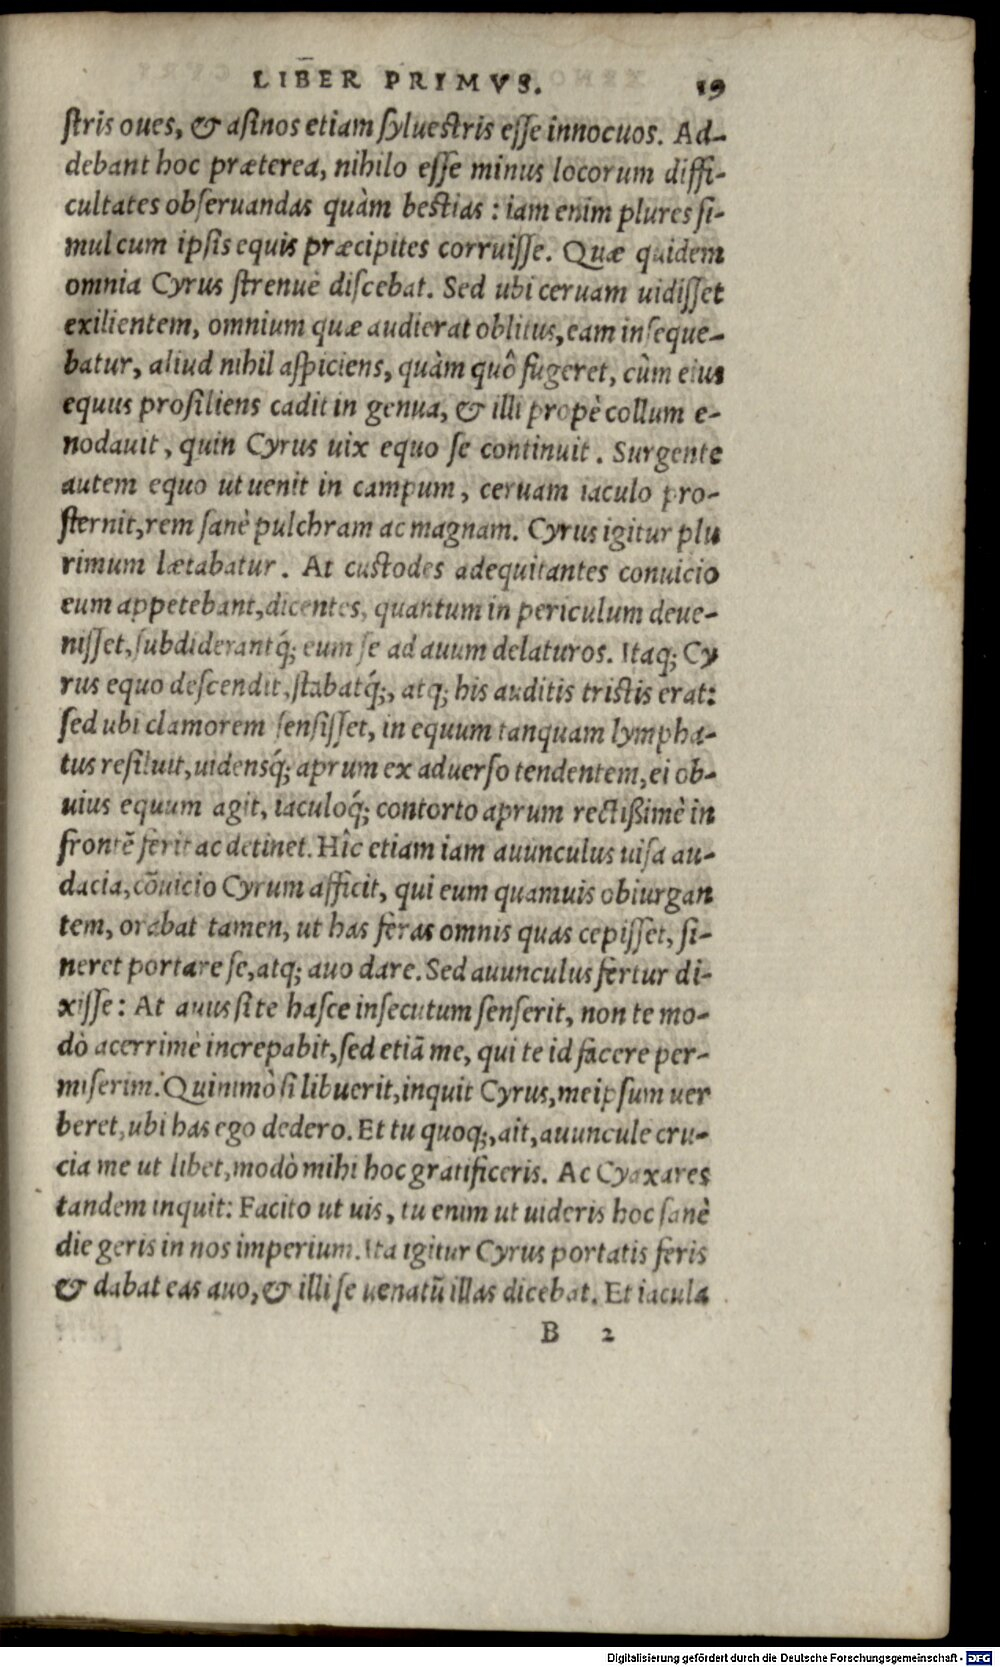 LIBER PRIMVS. 19
ſtris oues, & aſinos etiam ſylueſtris eſſe innocuos. Ad-
debant hoc præterea, nihilo eſſe minus locorum diffi-
cultates obſeruandas quàm beſtias : iam enim plures ſi-
mul cum ipſis equis præcipites corruiſſe. Quæ quidem
omnia Cyrus ſtrenuè diſcebat. Sed ubi ceruam uidiſſet
exilientem, omnium quæ audierat oblitus, eam inſeque-
batur, aliud nihil aſpiciens, quàm quô fugeret, cùm eius
equus proſiliens cadit in genua, & illi propè collum e-
nodauit, quin Cyrus uix equo ſe continuit. Surgente
autem equo ut uenit in campum, ceruam iaculo pro-
ſternit, rem ſanè pulchram ac magnam. Cyrus igitur plu
rimum lætabatur. At cuſtodes adequitantes conuicio
eum appetebant, dicentes, quantum in periculum deue-
niſſet, ſubdiderantq́; eum ſe ad auum delaturos. Itaq; Cy
rus equo deſcendit, ſtabatq́;, atq; his auditis triſtis erat:
ſed ubi clamorem ſenſiſſet, in equum tanquam lympha-
tus reſiluit, uidensq́; aprum ex aduerſo tendentem, ei ob-
uius equum agit, iaculoq́; contorto aprum rectißimè in
frontē ferit ac detinet. Hîc etiam iam auunculus uiſa au-
dacia, cōuicio Cyrum afficit, qui eum quamuis obiurgan
tem, orabat tamen, ut has feras omnis quas cepiſſet, ſi-
neret portare ſe, atq; auo dare. Sed auunculus fertur di-
xiſſe : At auus ſi te haſce inſecutum ſenſerit, non te mo-
dò acerrimè increpabit, ſed etiā me, qui te id facere per-
miſerim. Quinimò ſi libuerit, inquit Cyrus, meipſum uer
beret, ubi has ego dedero. Et tu quoq;, ait, auuncule cru-
cia me ut libet, modò mihi hoc gratificeris. Ac Cyaxares
tandem inquit: Facito ut uis, tu enim ut uideris hoc ſanè
die geris in nos imperium. Ita igitur Cyrus portatis feris
& dabat eas auo, & illi ſe uenatū illas dicebat. Et iacula
B 2
Digitalisierung gefördert durch die Deutsche Forschungsgemeinschaft - DFG